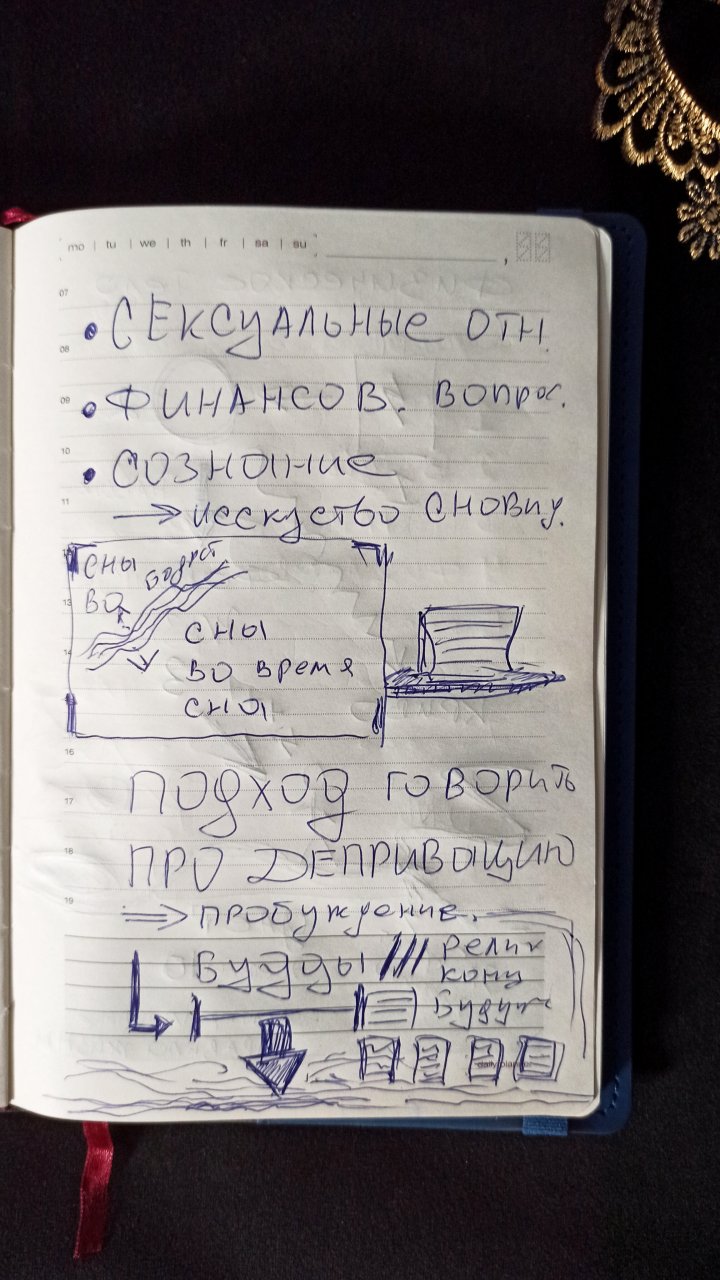 mo | tu | we | th | fr | sa | su
07
• СЕКСУАЛЬНЫЕ ОТН.
08
09
• ФИНАНСОВ. ВОПРОС.
10
• СОЗНАНИЕ
11
→ ИССКУСТВО СНОВИД.
СНЫ
ВО
бодрст
13
СНЫ
14
ВО ВРЕМЯ
СНА
16
ПОДХОД ГОВОРИТЬ
17
18
ПРО ДЕПРИВАЦИЮ
19
⇒ ПРОБУЖДЕНИЕ.
БУДДЫ /// РЕЛИГ
КОНЦ
Будущ
daily planner